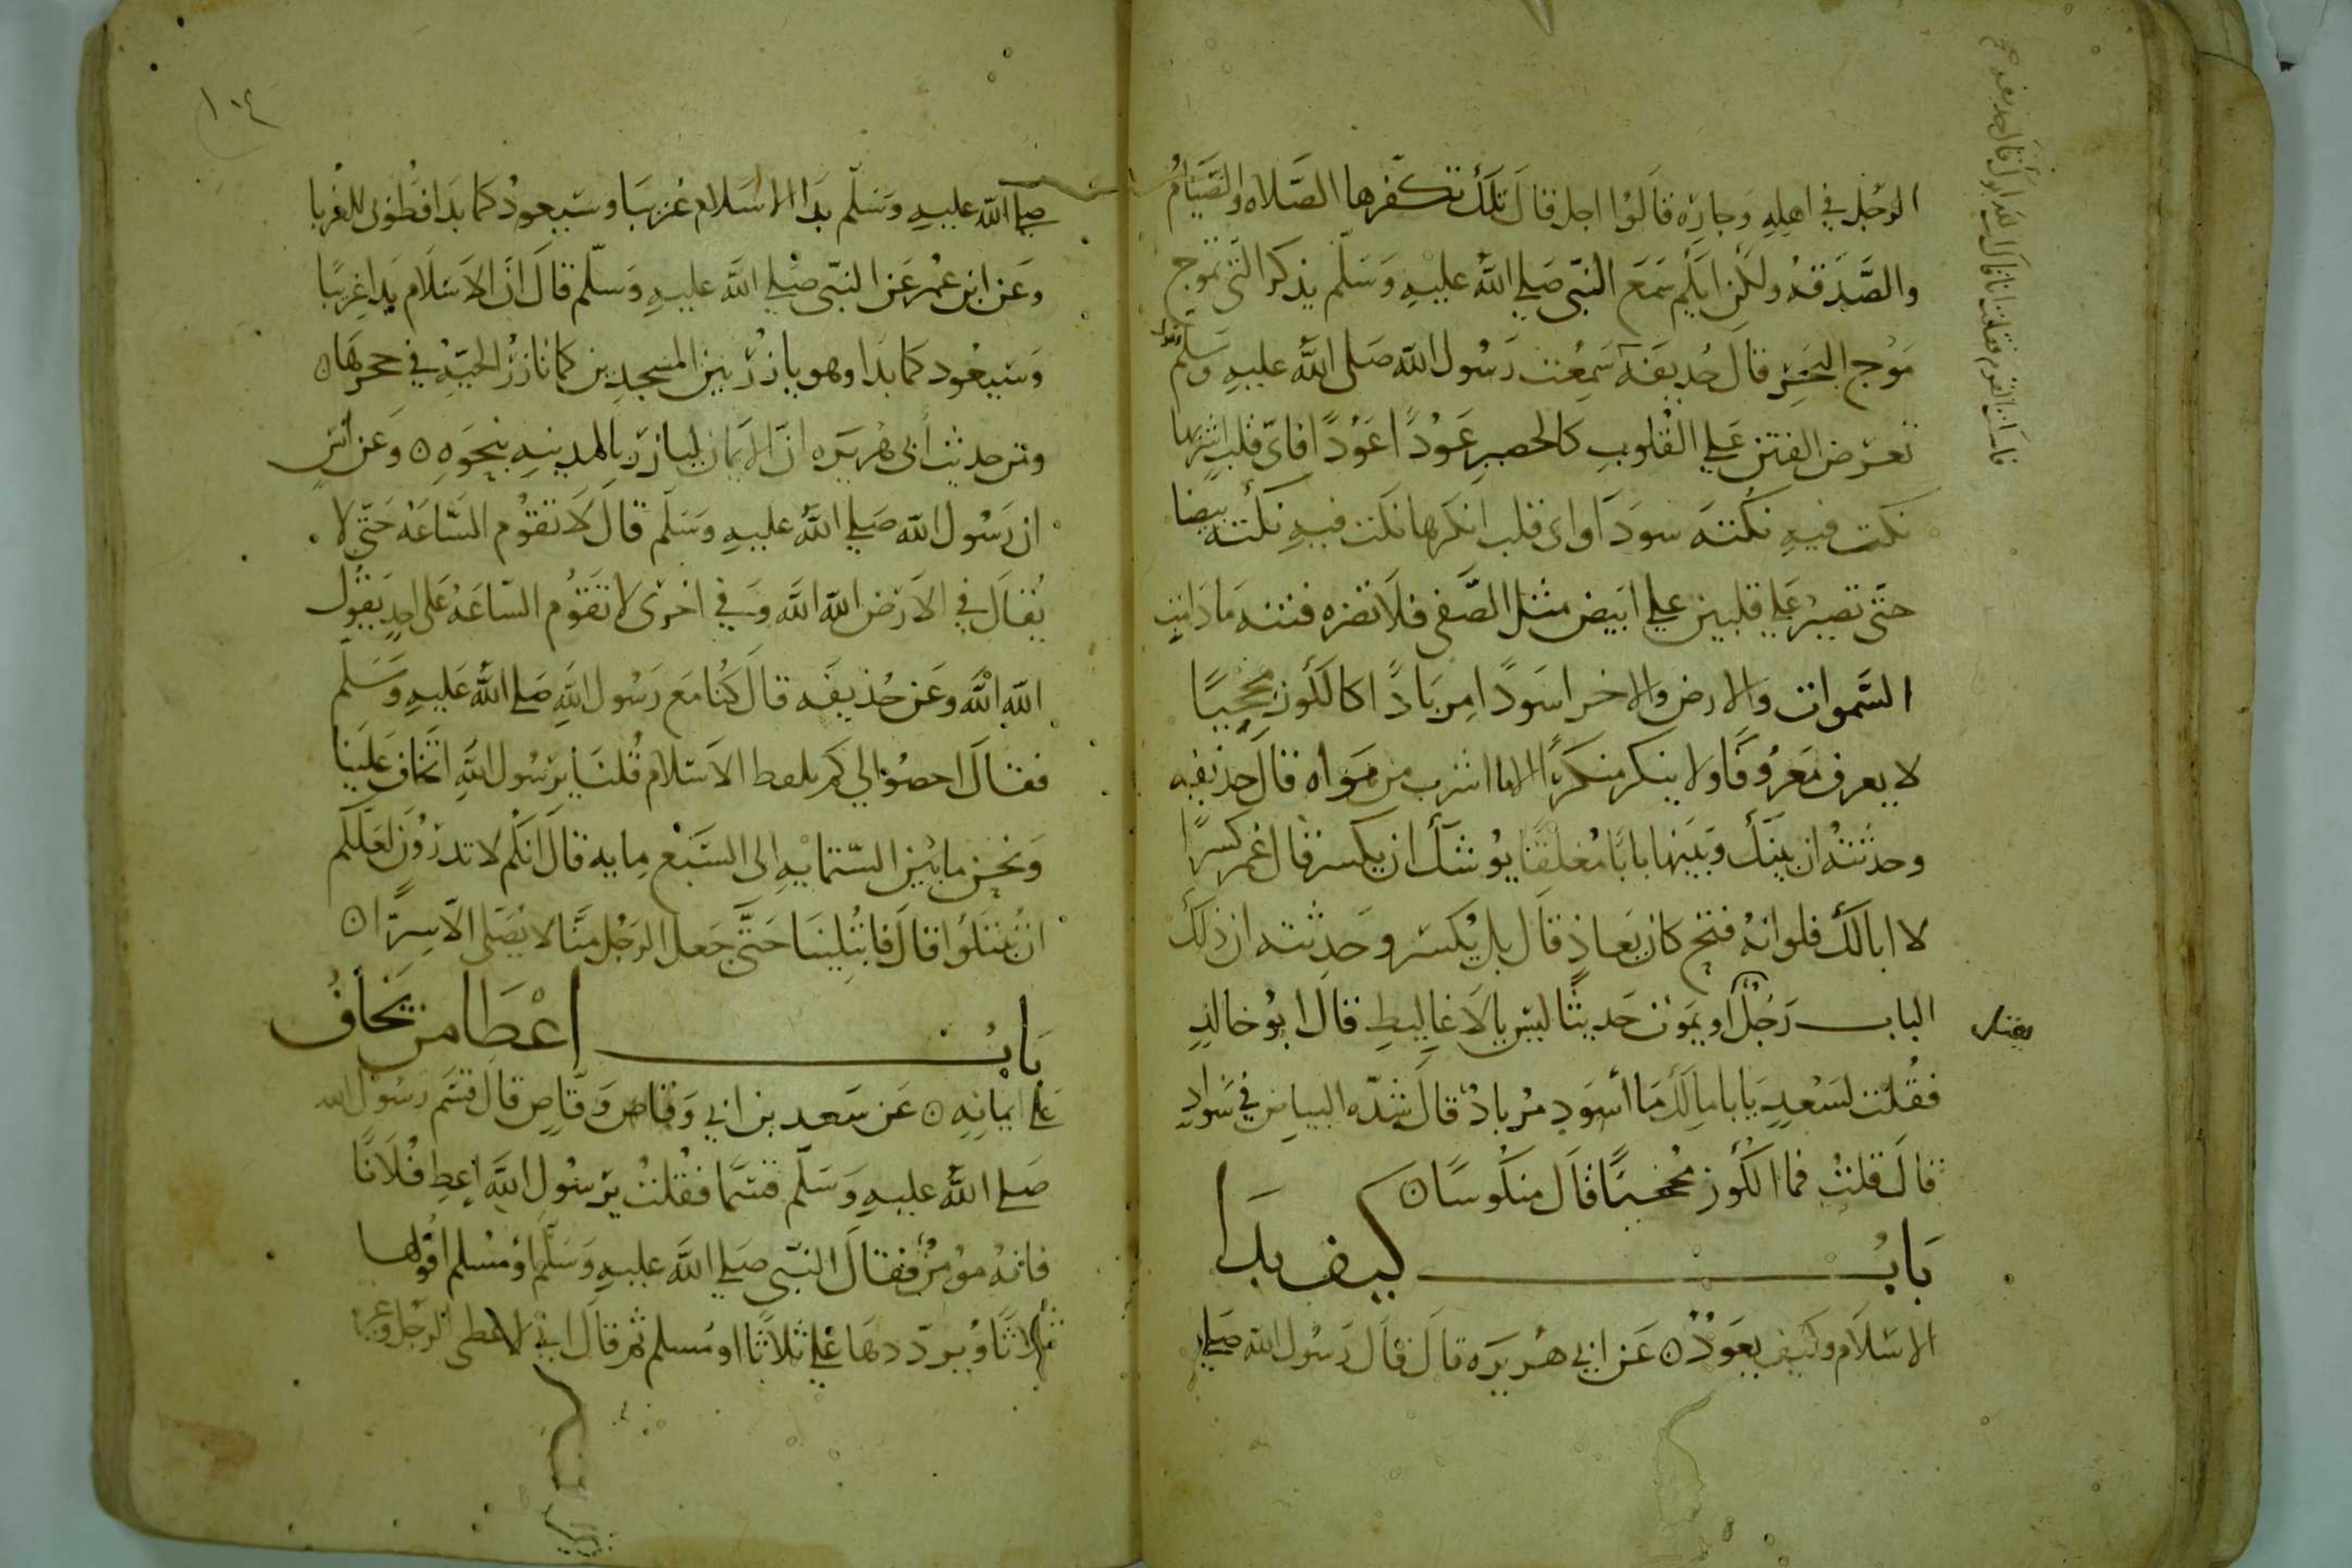 الرجل في اهله وجاره قالوا اجل قال تلك تكفرها الصلاه والصيام
والصدقه ولكن ايكم سمع النبي صلي الله عليه وسلم يذكر التي تموج
موج البحر قال حذيفه سمعت رسول الله صلى الله عليه وسلم يقول
تعرض الفتن علي القلوب كالحصير عودًا عودًا فاي قلب اشربها
نكت فيه نكته سودا واي قلب انكرها نكت فيه نكته بيضا
حتى تصير علي قلبين علي ابيض مثل الصفى فلا تضره فتنه ما دامت
السموات والارض والاخر اسود مربادًا كالكوز مجخيًا
لا يعرف معروفًا ولا ينكر منكرًا الا ما اشرب من هواه قال حذيفه
وحدثته ان بينك وبينها بابا مغلقا يوشك ان يكسر قال عمر كسرًا
لا ابا لك فلو انه فتح كان يعاد قال بل يكسر وحدثته ان ذلك
الباب رجل او يموت حديثا ليس بالاغاليط قال ابو خالد
يقتل
فقلت لسعد يابا مالك ما اسود مرباد قال شده البياض في سواد
قال قلت فما الكوز مجخيًا قال منكوسًا
باب كيف بدا
الاسلام وكيف يعود عن ابي هريره قال قال رسول الله صلي
١٠٤
صلي الله عليه وسلم بدا الاسلام غريبا وسيعود كما بدا فطوبى للغربا
وعن ابن عمر عن النبي صلي الله عليه وسلم قال ان الاسلام بدا غريبًا
وسيعود كما بدا وهو يازر بين المسجدين كما تازر الحيه في جحرها
ومن حديث أبي هريره ان الايمان ليازر بالمدينه بنحوه وعن أنس
ان رسول الله صلي الله عليه وسلم قال لا تقوم الساعه حتى لا
يقال في الارض الله الله وفي اخرى لا تقوم الساعه على احد يقول
الله الله وعن حذيفه قال كنا مع رسول الله صلي الله عليه وسلم
فقال احصوا لي كم يلفظ الاسلام قلنا يرسول الله اتخاف علينا
ونحن ما بين الستمايه الى السبع مايه قال انكم لا تدرون لعلكم
ان تبتلوا قال فابتلينا حتى جعل الرجل منا لا يصلي الا سرًا
باب اعطا من يخاف
علي ايمانه عن سعد بن ابي وقاص وقاص قال قسم رسول الله
صلي الله عليه وسلم قسما فقلت يرسول الله اعط فلانًا
فانه مومن فقال النبي صلي الله عليه وسلم او مسلم اقولها
ثلاثا ويرددها علي ثلاثا او مسلم ثم قال اني لاعطى الرجل